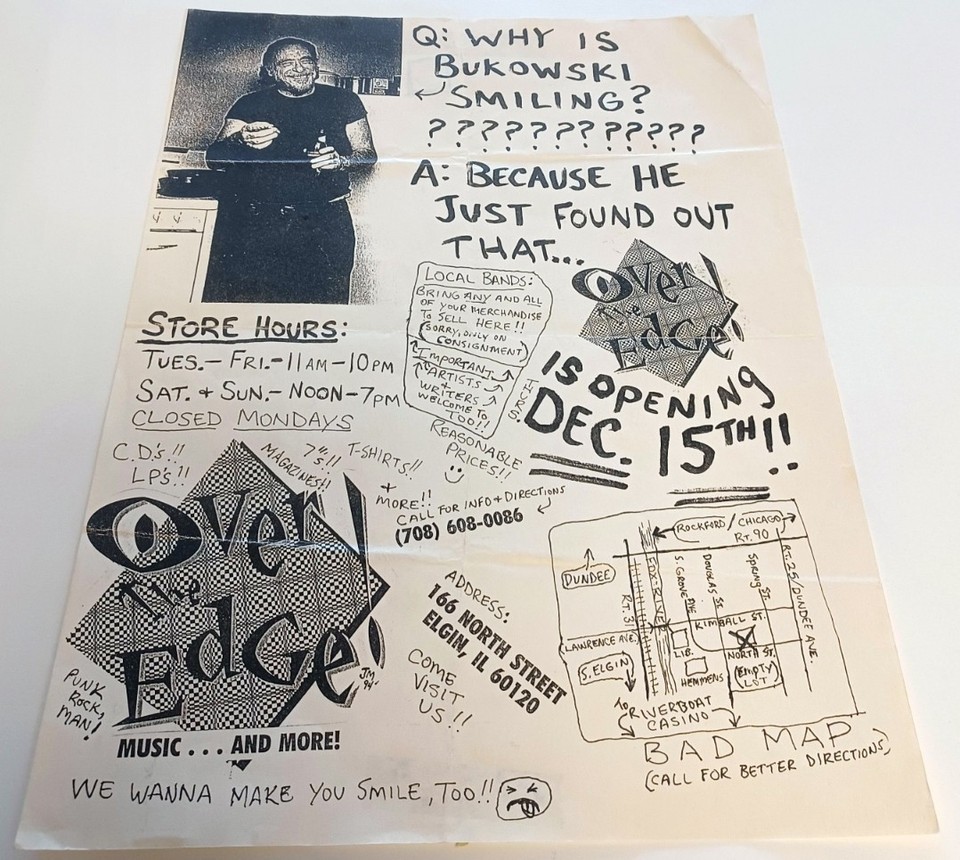 Q: WHY IS
BUKOWSKI
SMILING?
????????????
A: BECAUSE HE
JUST FOUND OUT
THAT...
OVER
the
EDGE!
IS OPENING
DEC. 15TH!!
LOCAL BANDS:
BRING ANY AND ALL
OF YOUR MERCHANDISE
TO SELL HERE!!
(SORRY, ONLY ON
CONSIGNMENT)
IMPORTANT
ARTISTS
+
WRITERS
WELCOME TO
TOO!!
STORE HOURS:
TUES.-FRI.-11AM-10PM
SAT. & SUN.-NOON-7PM
CLOSED MONDAYS
C.D.'s!!
LP's!!
MAGAZINES!!
7"s!!
T-SHIRTS!!
+
MORE!!
REASONABLE
PRICES!!
CALL FOR INFO + DIRECTIONS
(708) 608-0086
OVER
the
EDGE!
JM 94'
PUNK
ROCK,
MAN!
MUSIC...AND MORE!
ADDRESS:
166 NORTH STREET
ELGIN, IL 60120
COME
VISIT
US!!
ROCKFORD/CHICAGO
RT. 90
DUNDEE
RT. 31
FOX RIVER
S. GROVE AVE.
DOUGLAS ST.
SPRING ST.
RT. 25/DUNDEE AVE.
KIMBALL ST.
LAWRENCE AVE.
LIB.
NORTH ST.
S. ELGIN
HEMMENS
(EMPTY
LOT)
TO RIVERBOAT
CASINO
BAD MAP
(CALL FOR BETTER DIRECTIONS)
WE WANNA MAKE YOU SMILE, TOO!!